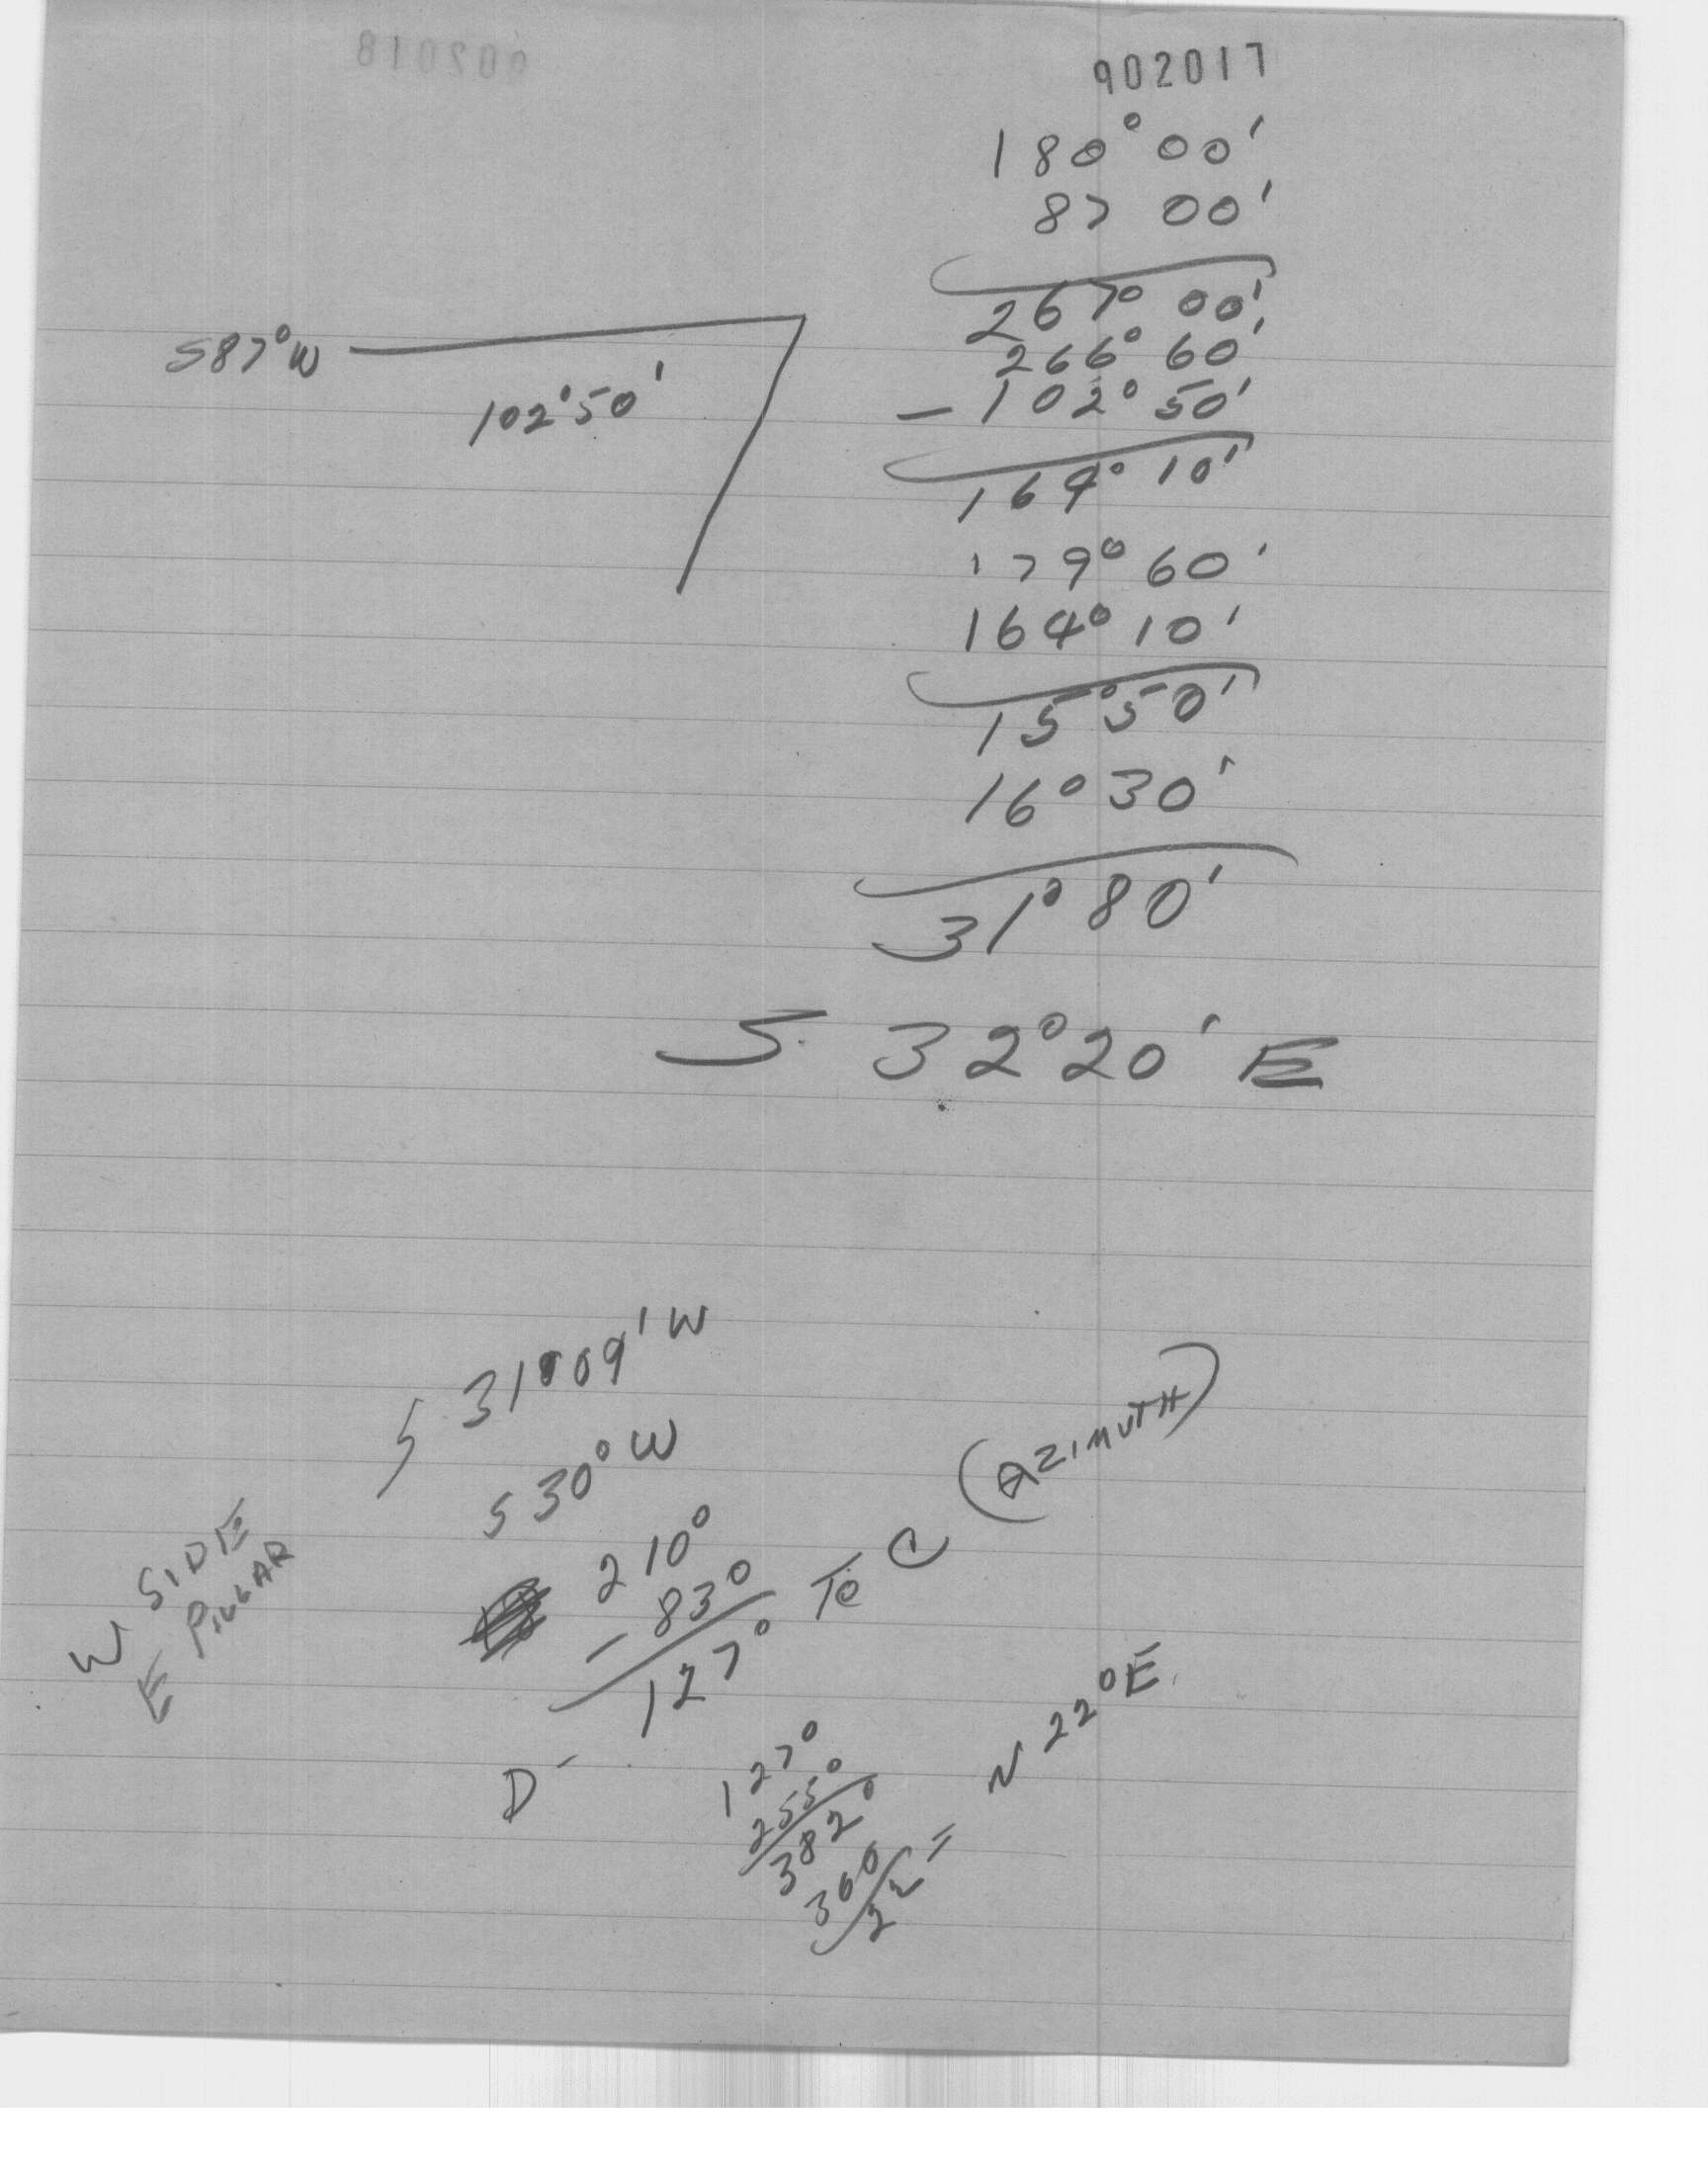 902018
902017
180° 00'
87 00'
267° 00'
266° 60'
- 102° 50'
164° 10'
S87°W
102°50'
179° 60'
164° 10'
15°50'
16° 30'
31° 80'
S 32°20' E
S 31°09' W
S 30° W
210°
- 83°
127° To C (AZIMUTH)
W SIDE
E PILLAR
D -
127°
255°
382°
360
22 = N 22° E.